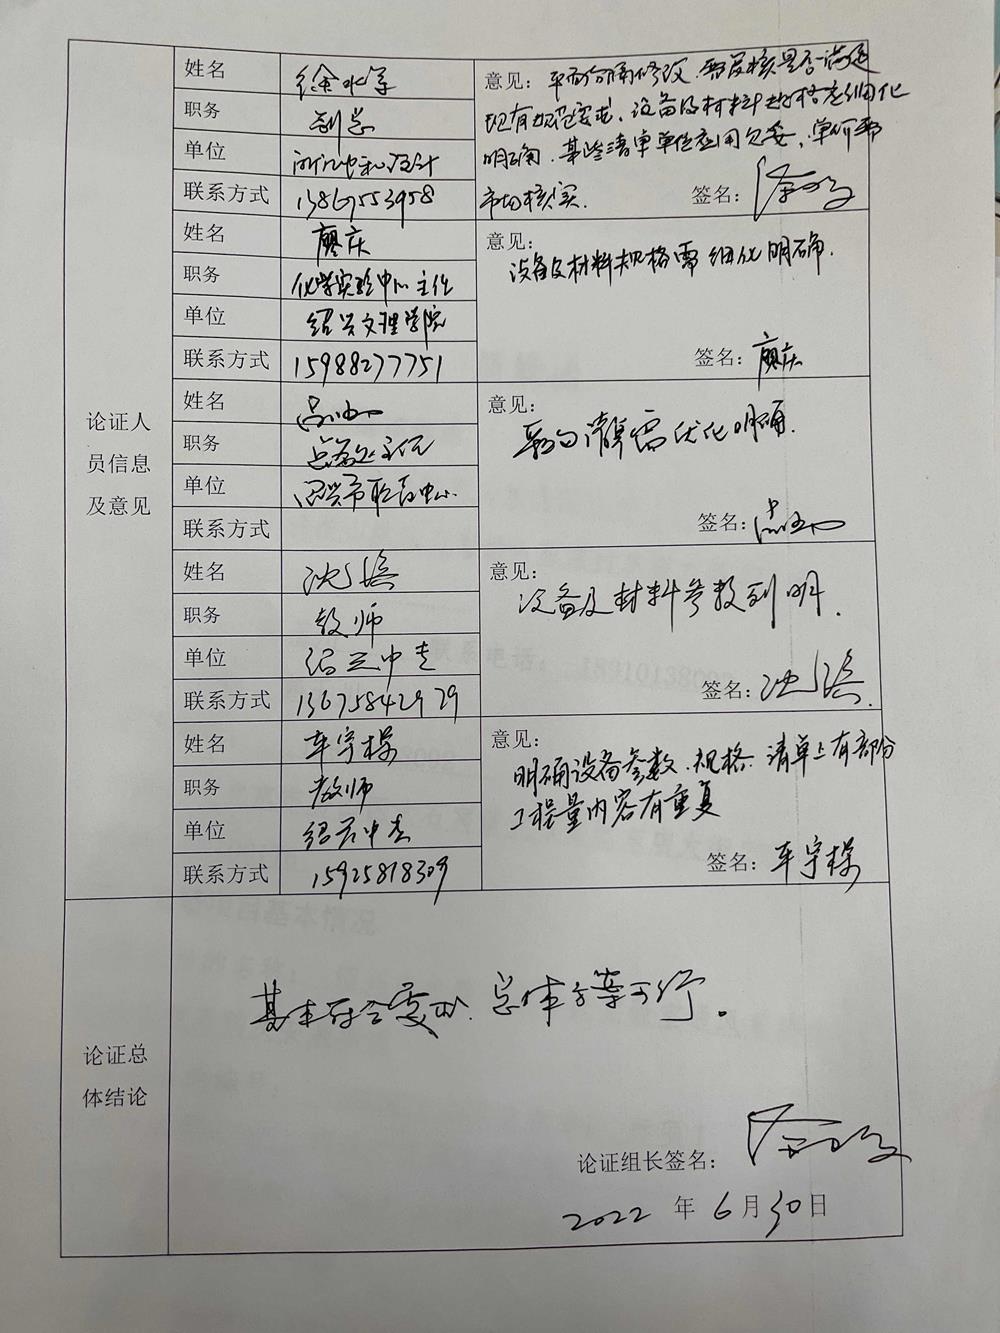 姓名 徐水
职务 副总
单位
联系方式 13867553958
意见：平面布局修改，需复核是否满足
现有规范要求，设备及材料规格应细化
明确，某些清单单位应用欠妥，单价需
市场核实。
签名：
姓名 廖庆
职务 化学实验中心主任
单位 绍兴文理学院
联系方式 15988277751
意见：
设备及材料规格需细化明确.
签名：廖庆
姓名
职务 主任
单位 绍兴市职教中心
联系方式
意见：
清单需优化明确.
签名：
姓名 沈
职务 教师
单位 绍兴中专
联系方式 13675842929
意见：
设备及材料参数列明.
签名：沈
姓名 车宇操
职务 教师
单位 绍兴中专
联系方式 15925818309
意见：
明确设备参数、规格.清单上有部份
工程量内容有重复
签名：车宇操
论证人
员信息
及意见
论证总
体结论
基本符合要求，总体方案可行。
论证组长签名：
2022 年 6 月 30 日